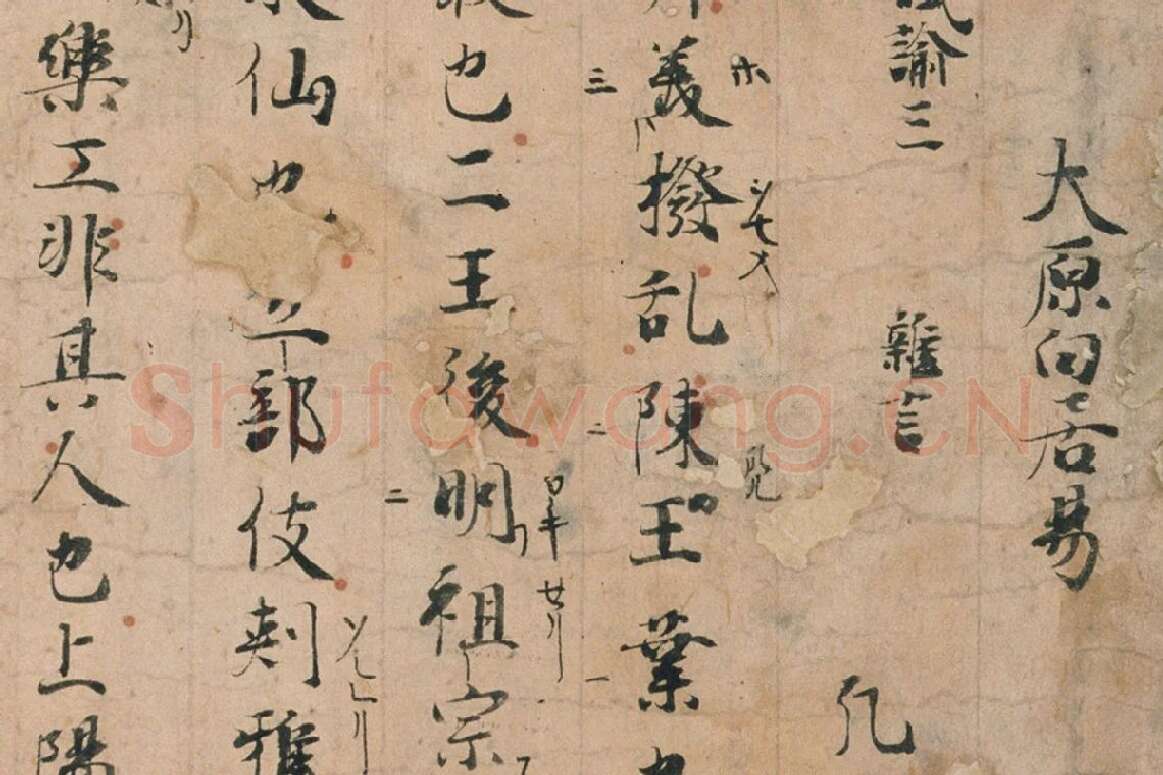 大原白居易
諭三 雜言 凡
義撥乱陳王業
也二王後明祖宗
仙也立部伎刺雅
樂工非其人也上陽
Shufawang.CN